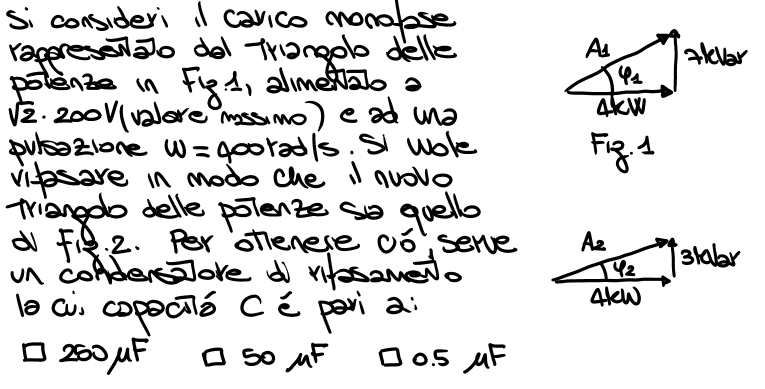 Si consideri il carico monofase
rappresentato dal triangolo delle
potenze in Fig.1, alimentato a
√2·200V (valore massimo) e ad una
pulsazione ω = 400 rad/s. Si vuole
rifasare in modo che il nuovo
triangolo delle potenze sia quello
di Fig.2. Per ottenere ciò, serve
un condensatore di rifasamento
la cui capacitá C é pari a:
□ 250 μF □ 50 μF □ 0.5 μF
A1
φ1
7kVar
4kW
Fig. 1
A2
φ2
3kVar
4kW